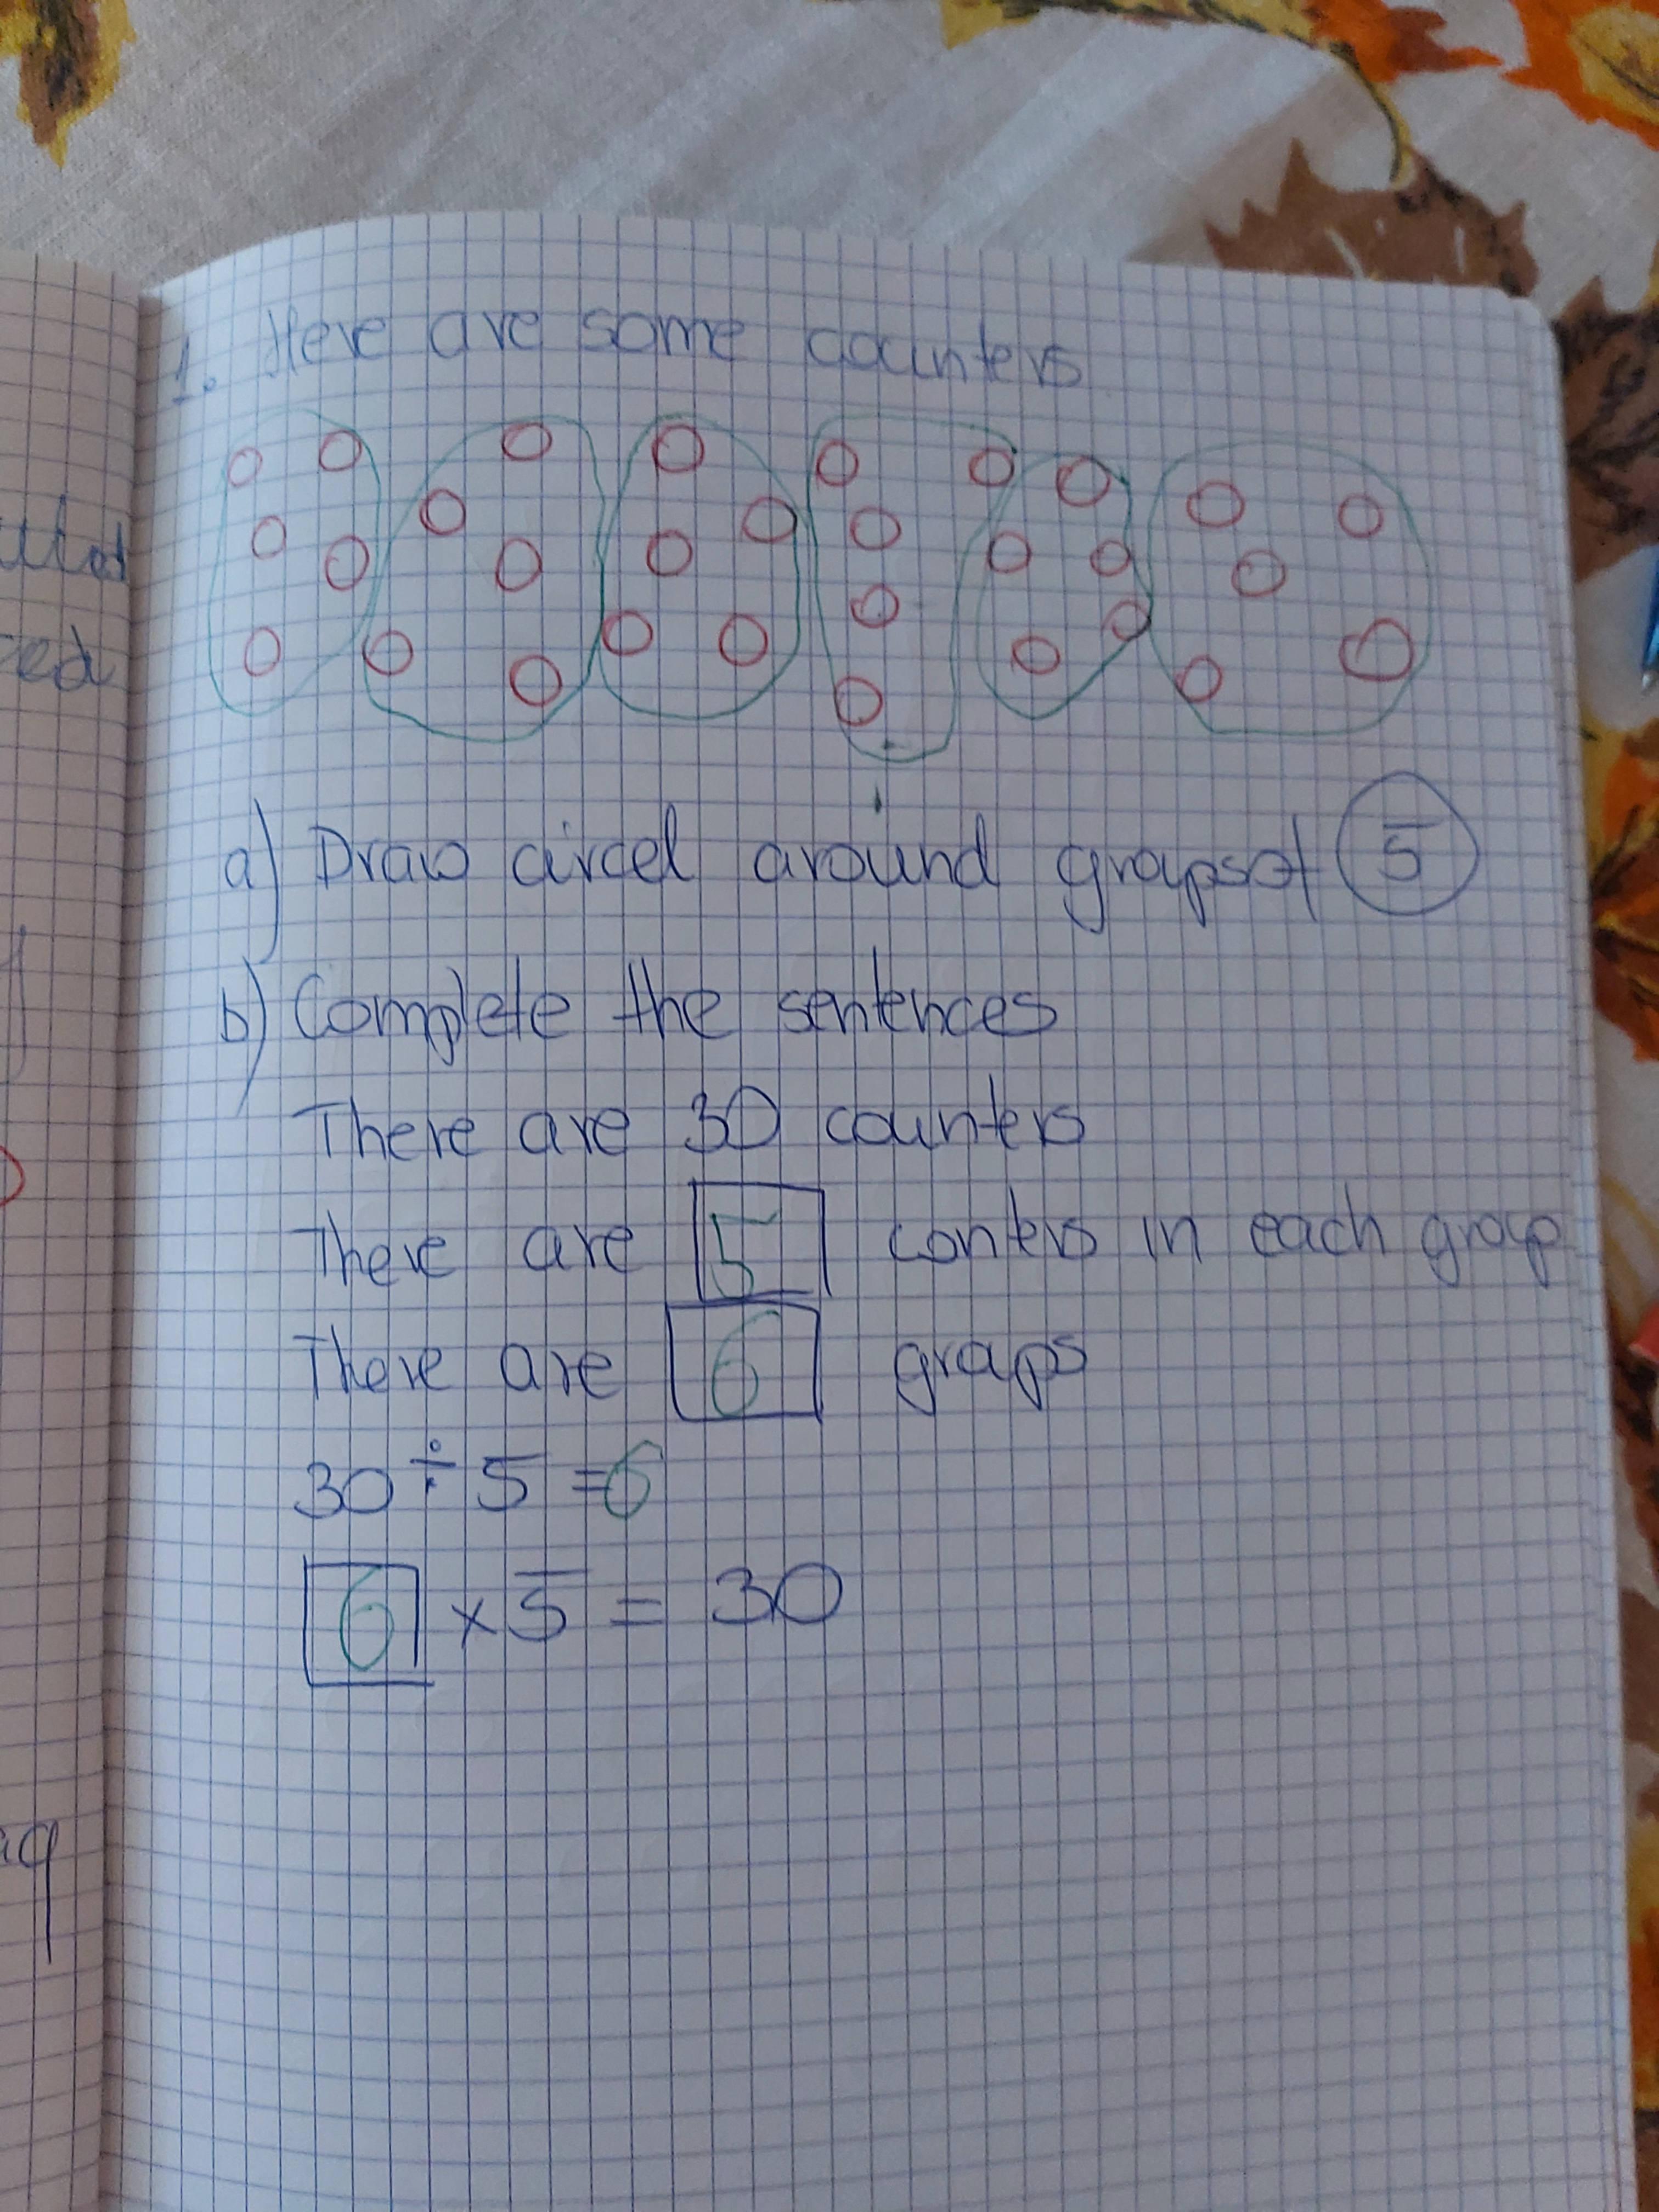 1. Here are some counters
a) Draw circel around graps of 5
b) Complete the sentences
There are 30 counters
There are 5 conters in each grap
There are 6 graps
30 ÷ 5 = 6
6 × 5 = 30